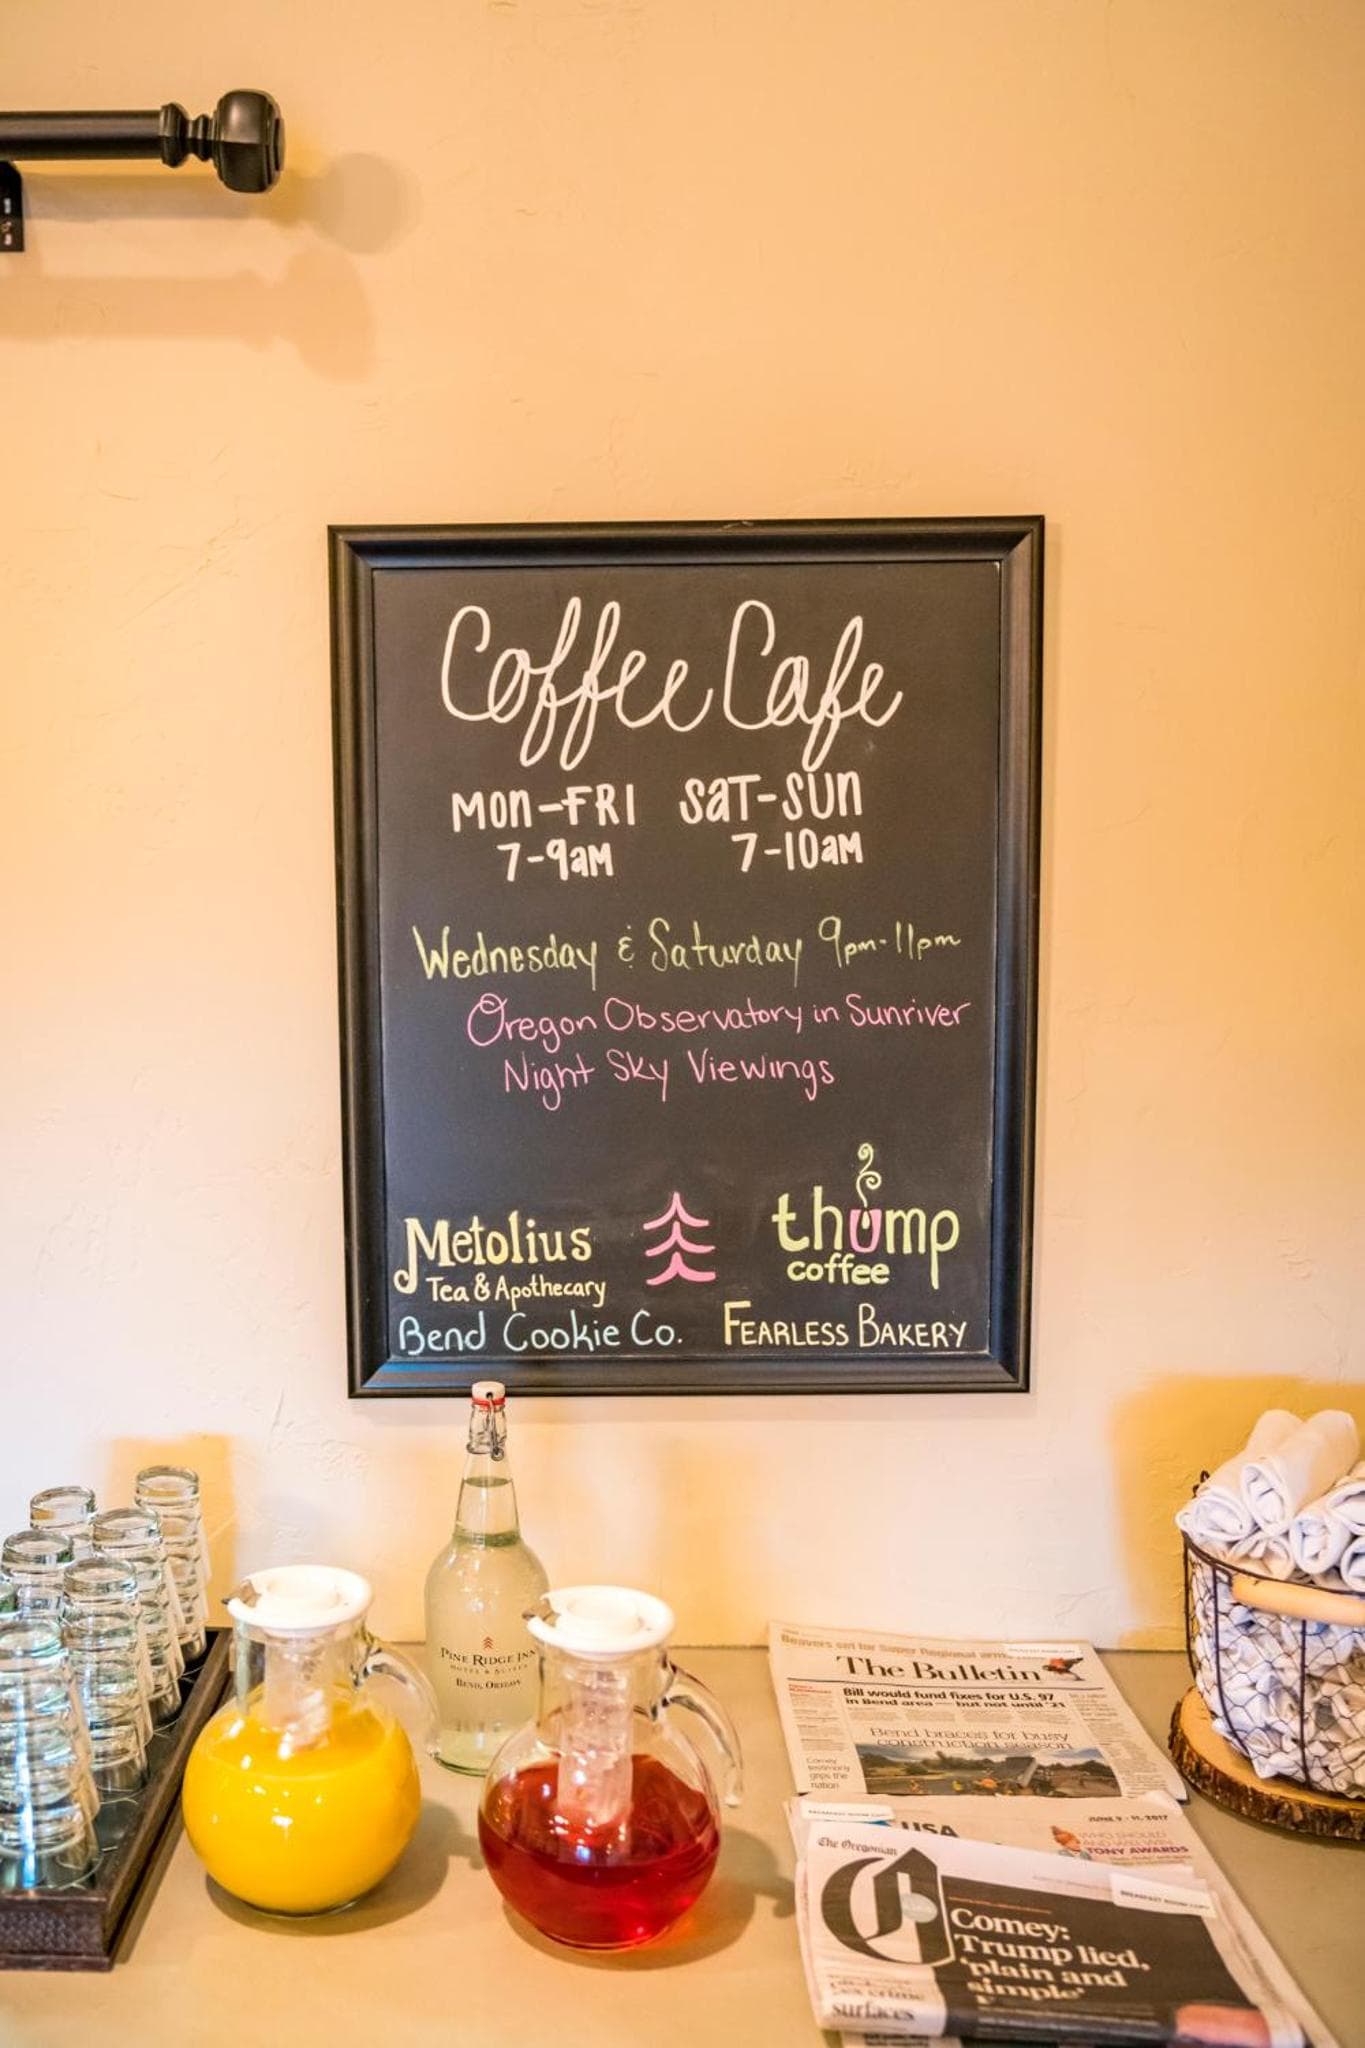 Coffee Cafe
MON-FRI SAT-SUN
7-9AM 7-10AM
Wednesday & Saturday 9pm-11pm
Oregon Observatory in Sunriver
Night Sky Viewings
Metolius
Tea & Apothecary
thump
coffee
Bend Cookie Co. FEARLESS BAKERY
PINE RIDGE INN
HOTEL & SUITES
BEND, OREGON
Beavers set for Super Regional
The Bulletin
Bill would fund fixes for U.S. 97
in Bend area — but not until '21
Bend braces for busy
construction season
Comey
testimony
grips the
nation
BREAKFAST ROOM COPY
JUNE 9 - 11, 2017
USA
WHO SHOULD
AND WILL WIN
TONY AWARDS
The Oregonian
BREAKFAST ROOM COPY
O
Comey:
Trump lied,
'plain and
simple'
surfaces